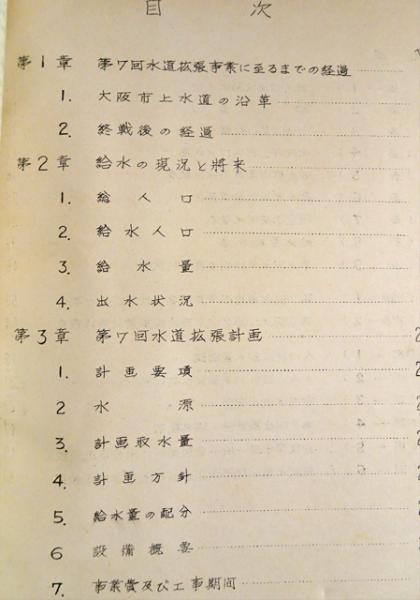 目 次
第1章 第7回水道拡張事業に至るまでの経過
1. 大阪市上水道の沿革
2. 終戦後の経過
第2章 給水の現況と將来
1. 総人口
2. 給水人口
3. 給水量
4. 出水状況
第3章 第7回水道拡張計画
1. 計画要項
2 水源
3. 計画取水量
4. 計画方針
5. 給水量の配分
6 設備概要
7. 事業費及び工事期間